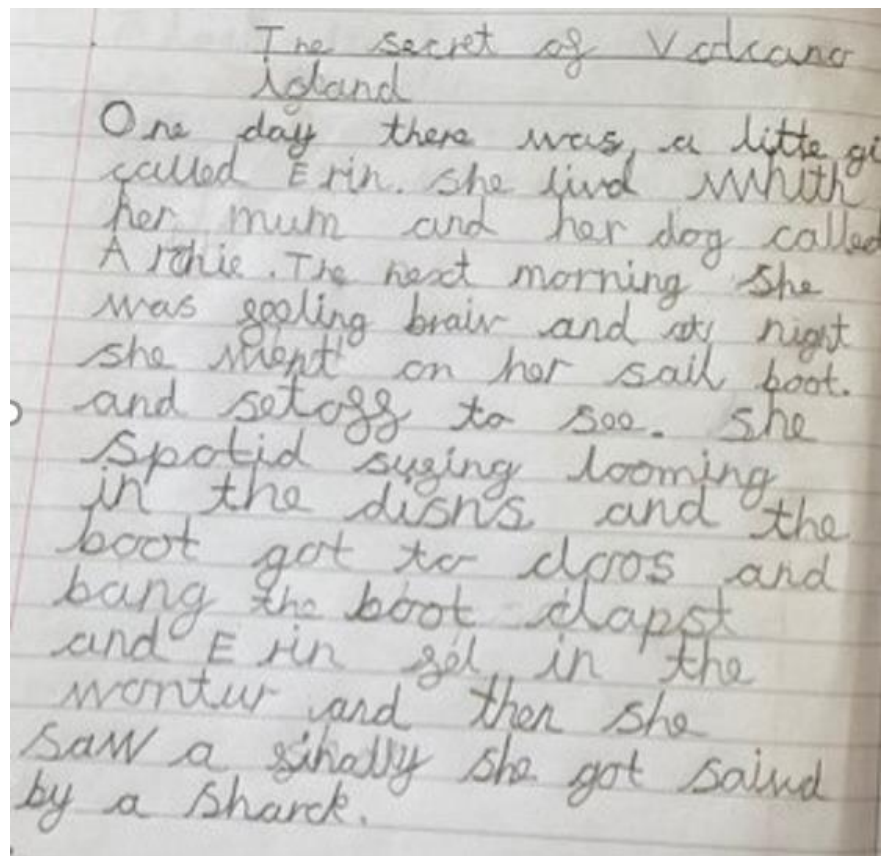 The secret of Volcano
island
One day there was, a litte gi
called Erin. she livd whith
her mum and her dog called
Archie. The next morning she
was feeling braiv and at night
she went on her sail boot.
and setoff to see. She
spotid suging looming
in the disns and the
boot got to cloos and
bang the boot clapst
and Erin fel in the
wontur and then she
saw a finally she got saivd
by a sharck.